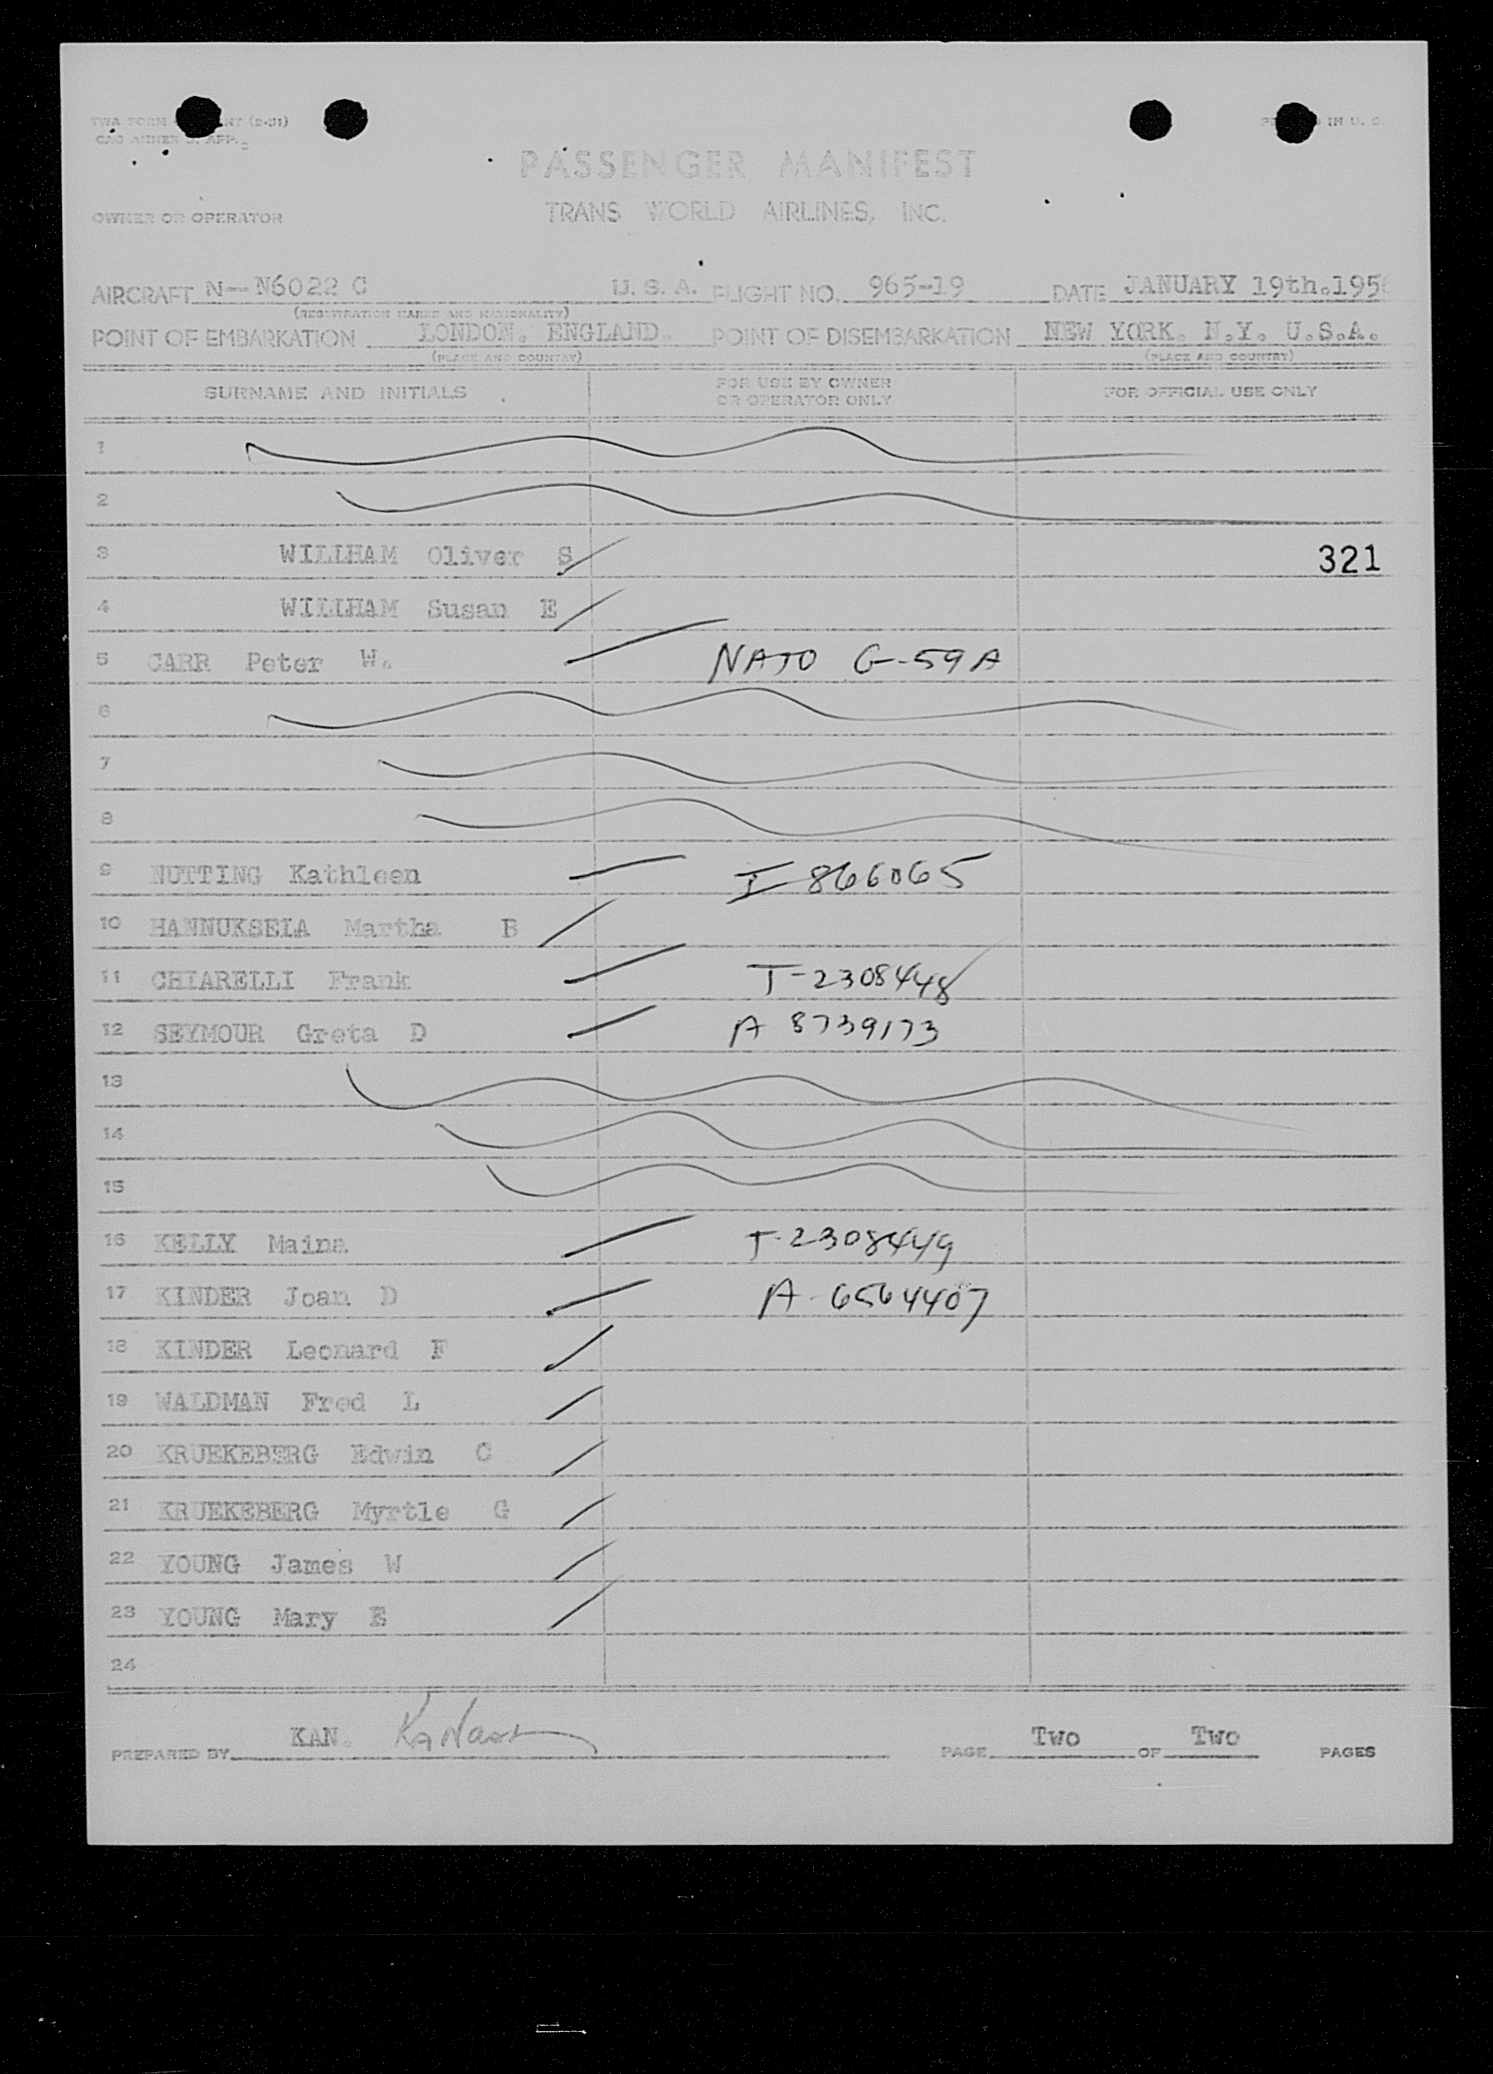 TWA FORM NT (2-51)
CAO ANNEX 9. APP. 2
PASSENGER MANIFEST
OWNER OR OPERATOR TRANS WORLD AIRLINES, INC.
AIRCRAFT N--N6022 C U. S. A. FLIGHT NO. 965-19 DATE JANUARY 19th.195
(REGISTRATION MARKS AND NATIONALITY)
POINT OF EMBARKATION LONDON. ENGLAND. POINT OF DISEMBARKATION NEW YORK. N.Y. U.S.A.
(PLACE AND COUNTRY) (PLACE AND COUNTRY)
SURNAME AND INITIALS FOR USE BY OWNER OR OPERATOR ONLY FOR OFFICIAL USE ONLY
1
2
3 WILLHAM Oliver S 321
4 WILLHAM Susan E
5 CARR Peter W. NATO G-59A
6
7
8
9 NUTTING Kathleen I-866065
10 HANNUKSELA Martha B
11 CHIARELLI Frank T-2308448
12 SEYMOUR Greta D A 8739173
13
14
15
16 KELLY Maina T-2308449
17 KINDER Joan D A-6564407
18 KINDER Leonard F
19 WALDMAN Fred L
20 KRUEKEBERG Edwin C
21 KRUEKEBERG Myrtle G
22 YOUNG James W
23 YOUNG Mary E
24
PREPARED BY KAN. PAGE Two OF Two PAGES